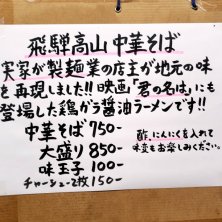 飛騨高山中華そば
実家が製麺業の店主が地元の味
を再現しました!!映画「君の名は」にも
登場した鶏ガラ醤油ラーメンです!!
中華そば 750-
大盛り 850-
味玉子 100-
チャーシュー2枚 150-
酢、にんにくを入れて
味変もお楽しみください。